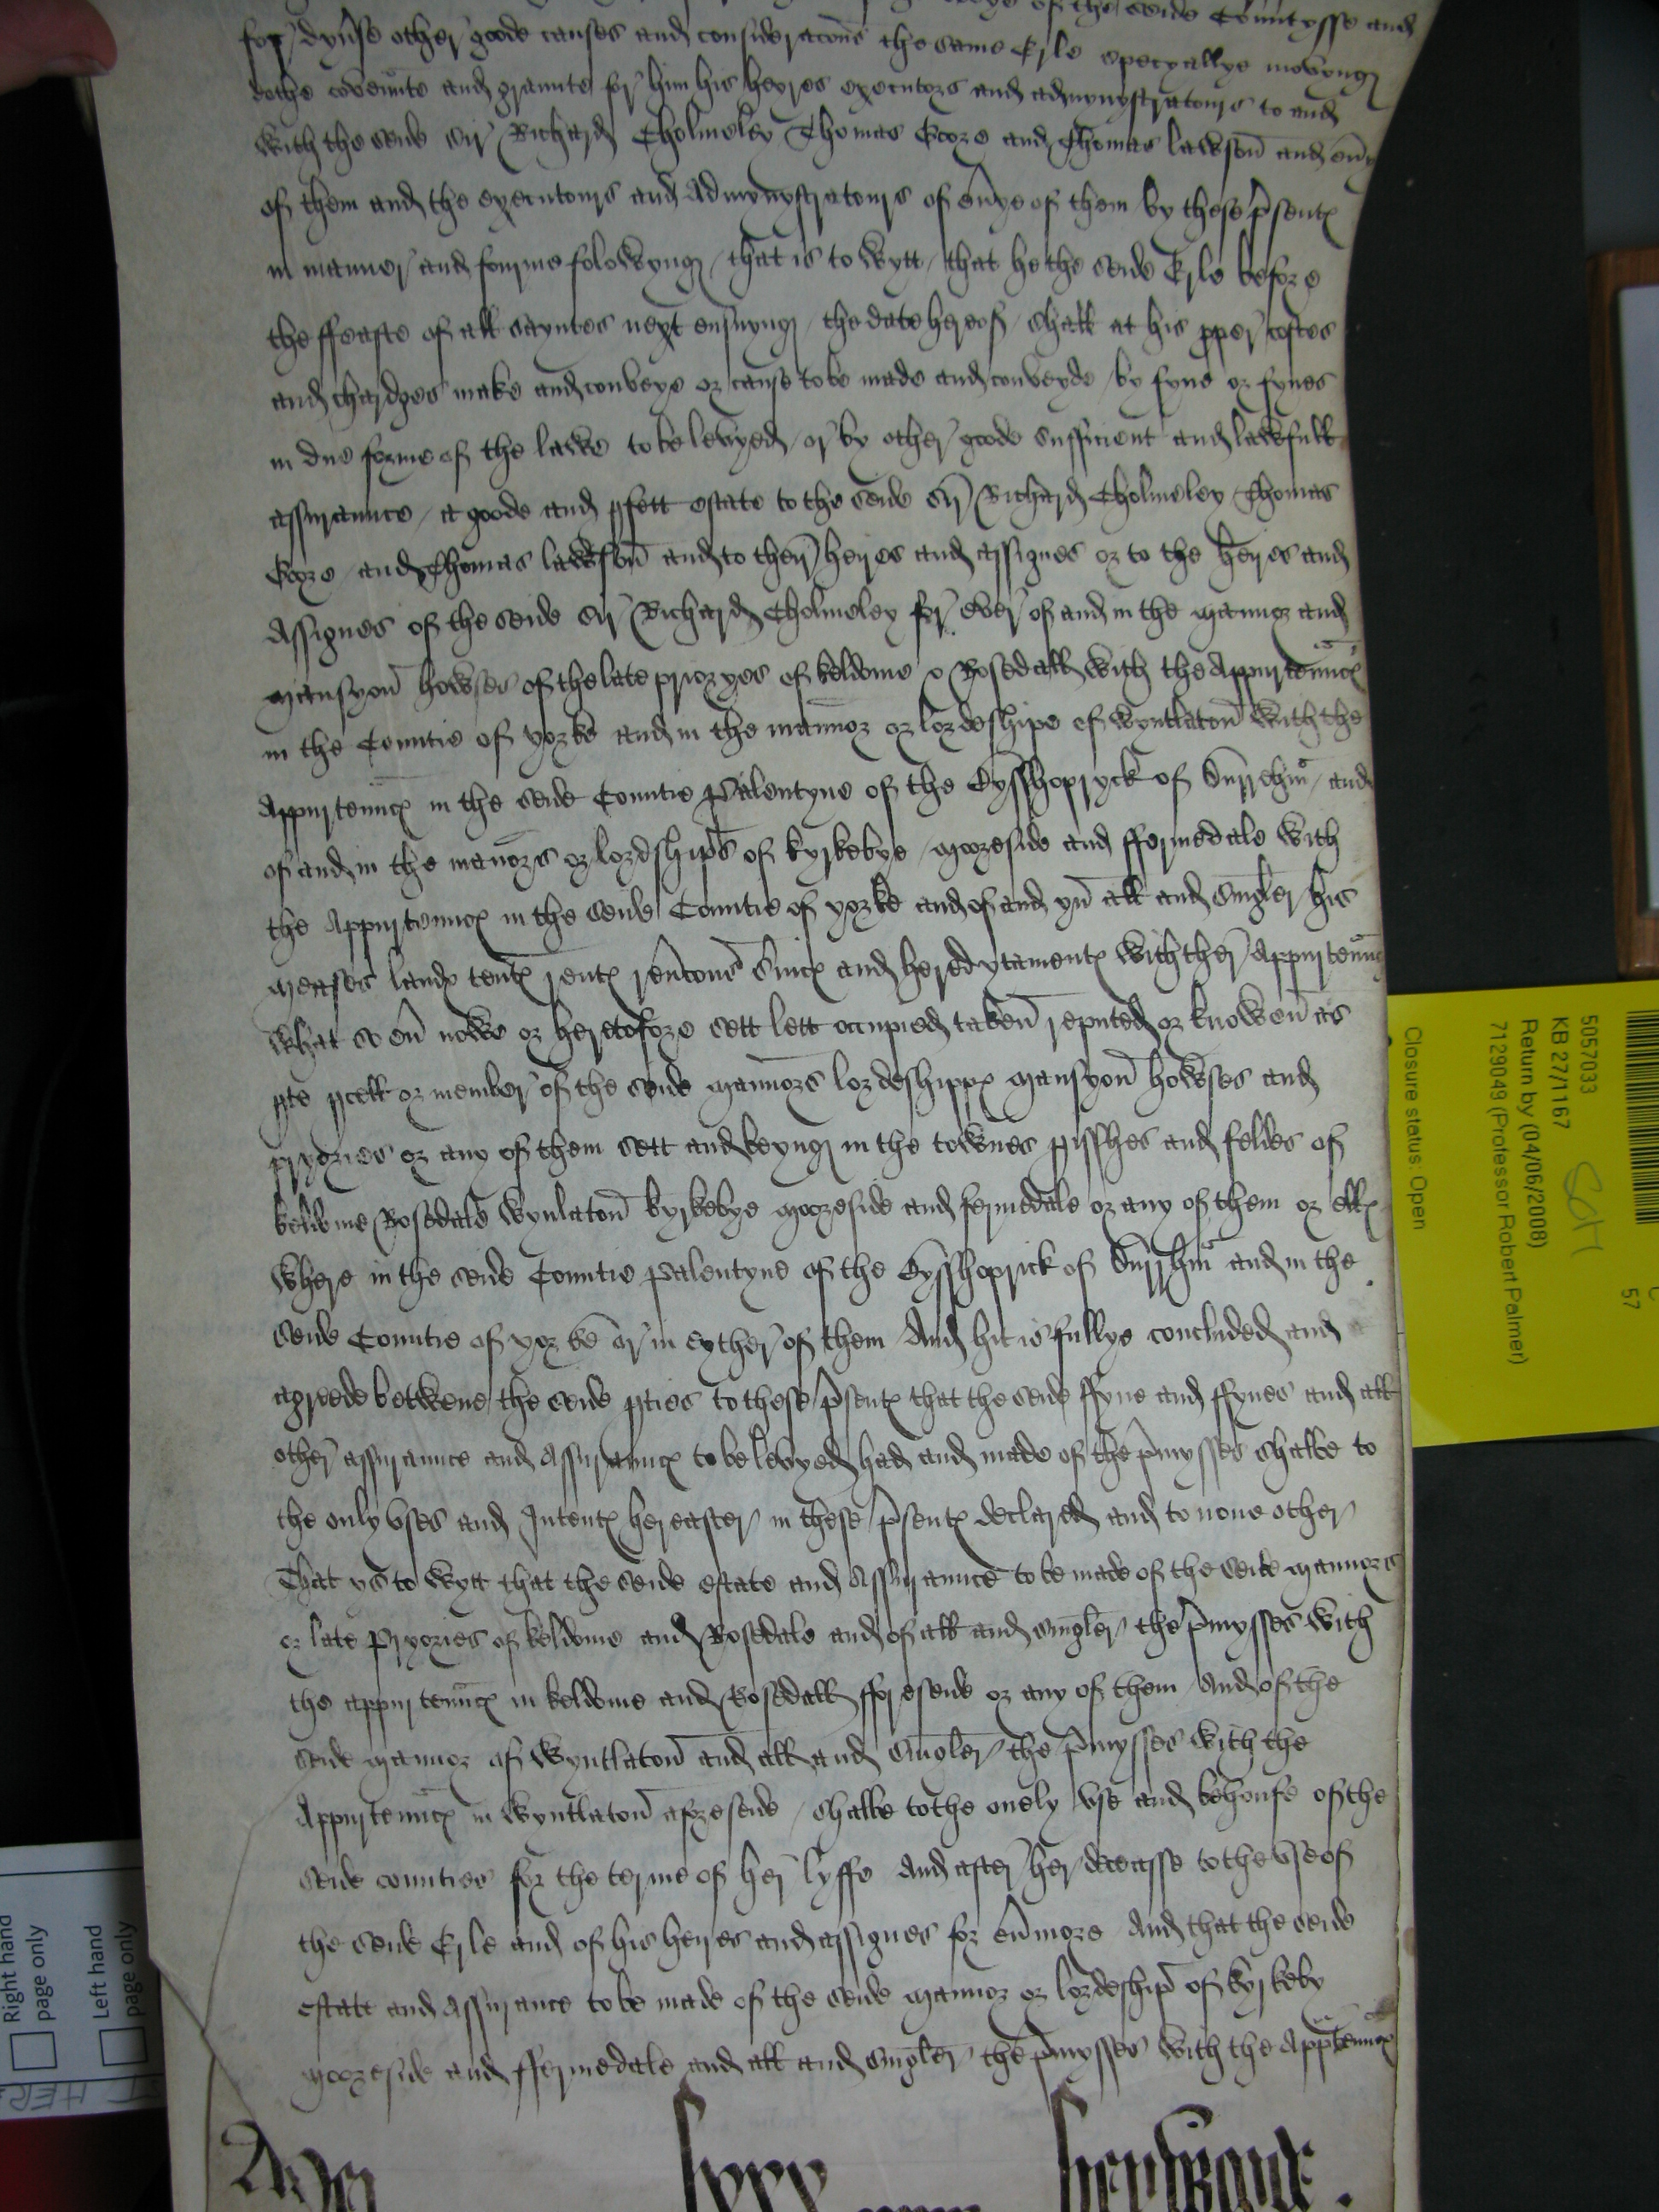 of the seide Countysse and
for dyu'se other goode causes and consideracons the same Erle specyallye movyng
dothe covennte and graunte for him his heyres executors and admynystratours to and
with the seide Sir Richard Cholmeley Thomas Gore and Thomas lawson and eu'y
of them and the executours and Admynystratours of eu'ye of them by these p'sentes
in manner and fourme folowyng / that is to wytt / that he the seide Erle before
the ffeaste of all sayntes next ensuyng / the date hereof / shall at his pper costes
and chardges make and conveye or cause to be made and conveyde / by fyne or fynes
in due forme of the lawe to be levyed / or by other goode sufficient and lawfull
assuraunce / a goode and pfett estate to the seide Sir Richard Cholmeley Thomas
Gore / and Thomas lawson and to their heires and assignes or to the heires and
Assignes of the seide Sir Richard Cholmeley for ever of and in the mannor and
mansyon howses of the late pryoryes of keldome & Rosedall with the Appurtennces
in the Countie of yorke and in the mannor or lordeshipe of wyntlaton with the
Appurtennces in the seide Countie Palentyne of the Bysshopryck of Durrehm / and
of and in the manors or lordships of kyrkebye / mooreside and ffermedale with
the Appurtennces in the seide Countie of yorke and of and yn all and singler his
meases landes tentes rentes reu'cons s'uices and heredytamentes with their Appurtennces
what so eu' nowe or heretofore sett lett occupied taken reputed or knowen as
pte pcell or member of the seide mannors lordeshippes mansyon howses and
pryories or any of them sett and beyng in the townes pisshes and feldes of
keldome Rosedale wynlaton kyrkebye mooreside and fermedale or any of them or elles
where in the seide Countie palentyne of the Bysshoprick of Durrhm and in the
seide Countie of yorke or in eyther of them And hit is fullye concluded and
agreede betwene the seide pties to these p'sentes that the seide ffyne and ffynes and all
other assuraunce and Assurances to be levyed had and made of the p'mysses shalbe to
the only vses and Intentes hereafter in these p'sentes declared and to none other
That ys to wytt that the seide estate and Assuraunce to be made of the seide mannors
or late pryories of keldome and Rosedale and of all and singler the p'mysses with
the appurtennces in keldome and Rosedall fforeseide or any of them And of the
seide mannor of wyntlaton and all and singler the p'mysses with the
Appurtennces in wyntlaton aforeseide / shalbe to the onely vse and behoufe of the
seide counties for the terme of her lyffe And after her deceasse to the vse of
the seide Erle and of his heires and assignes for eu'more And that the seide
estate and Assurance to be made of the seide mannor or lordeship of kyrkeby
mooreside and ffermedale and all and singler the p'mysses with the Appurtennces
5057033
KB 27/1167
Return by (04/06/2008)
7129049 (Professor Robert Palmer)
Closure status: Open
57
Right hand
page only
Left hand
page only